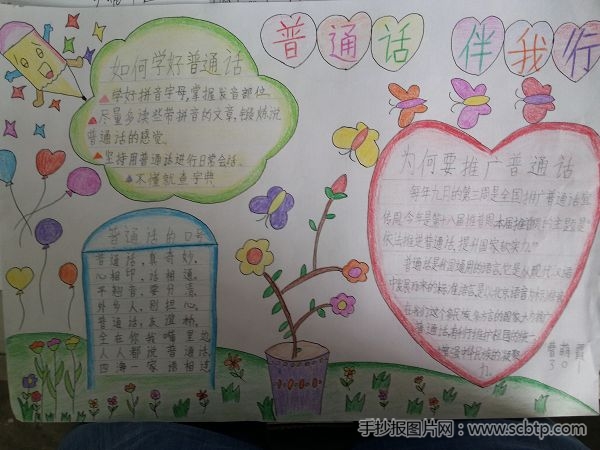 普通话 伴我行
如何学好普通话
学好拼音字母,掌握发音部位.
尽量多读些带拼音的文章,锻炼说
普通话的感觉.
坚持用普通话进行日常会话.
不懂就查字典
普通话的口号
普通话,真奇妙,
心相印,话相通,
平翘音,要分清,
外乡人,别担心,
普通话,友谊桥,
全在你我嘴里边
人人都说普通话,
四海一家语相通
为何要推广普通话
每年九月的第三周是全国推广普通话宣
传周,今年是第十八届推普周,本届推普周的主题是
依法推进普通话,提升国家软实力"
普通话是我国通用的语言,它是从现代汉语
发展而来的标准语言,是以北京语音为标准音
在我们这个多民族多方言的国家大力推广
普通话,有利于维护祖国的统一
增强民族的凝聚
力
曹萌霞
301
手抄报图片网:www.scbtp.com